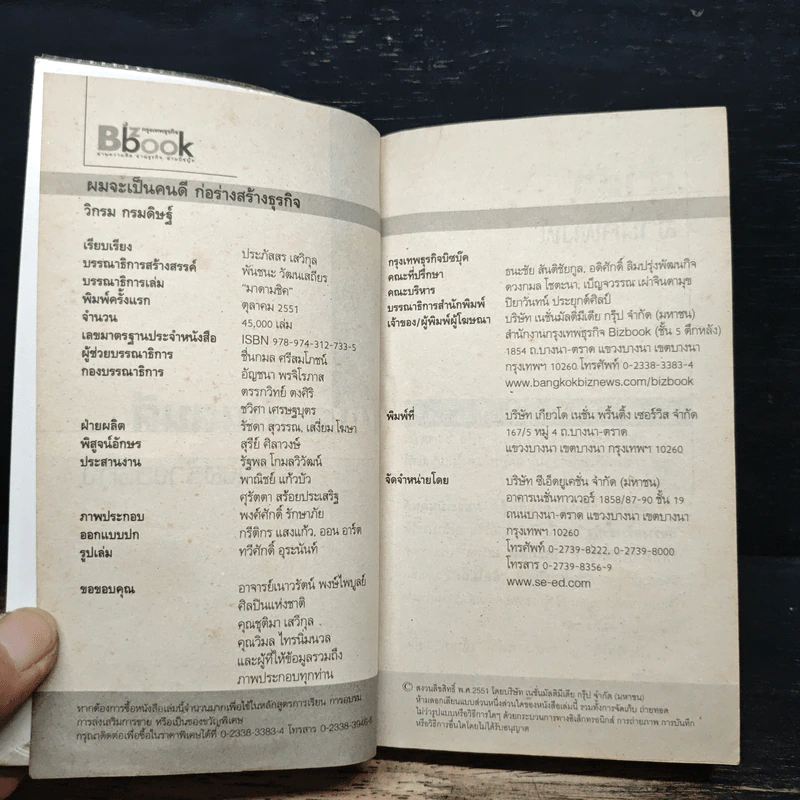 กรุงเทพธุรกิจ
Bizbook
ผมจะเป็นคนดี ก่อร่างสร้างธุรกิจ
วิกรม กรมดิษฐ์
เรียบเรียง ประภัสสร เสวิกุล
บรรณาธิการสร้างสรรค์ พันชนะ วัฒนเสถียร
บรรณาธิการเล่ม "มาดามชิค"
พิมพ์ครั้งแรก ตุลาคม 2551
จำนวน 45,000 เล่ม
เลขมาตรฐานประจำหนังสือ ISBN 978-974-312-733-5
ผู้ช่วยบรรณาธิการ ชื่นกมล ศรีสมโภชน์
กองบรรณาธิการ อัญชนา พรจิโรภาส
ตรรกวิทย์ ดงศิริ
ชวิศา เศรษฐบุตร
ฝ่ายผลิต รัชดา สุวรรณ, เสงี่ยม โฆษา
พิสูจน์อักษร สุรีย์ ศิลาวงษ์
ประสานงาน รัฐพล โกมลวิวัฒน์
พาณิชย์ แก้วบัว
ศุรัตตา สร้อยประเสริฐ
ภาพประกอบ พงศ์ศักดิ์ รักษาภัย
ออกแบบปก กรีติกร แสงแก้ว, ออน อาร์ต
รูปเล่ม ทวีศักดิ์ อุระนันท์
ขอขอบคุณ อาจารย์เนาวรัตน์ พงษ์ไพบูลย์
ศิลปินแห่งชาติ
คุณชุติมา เสวิกุล
คุณวิมล ไทรนิ่มนวล
และผู้ที่ให้ข้อมูลรวมถึง
ภาพประกอบทุกท่าน
หากต้องการซื้อหนังสือเล่มนี้จำนวนมากเพื่อใช้ในหลักสูตรการเรียน การอบรม
การส่งเสริมการขาย หรือเป็นของขวัญพิเศษ
กรุณาติดต่อเพื่อซื้อในราคาพิเศษได้ที่ 0-2338-3383-4 โทรสาร
กรุงเทพธุรกิจบิซบุ๊ค
คณะที่ปรึกษา ธนะชัย สันติชัยกูล, อดิศักดิ์ ลิมปรุ่งพัฒนกิจ
คณะบริหาร ดวงกมล โชตะนา, เบ็ญจวรรณ เผ่าจินดามุข
บรรณาธิการสำนักพิมพ์ ปิยาวันทน์ ประยุกต์ศิลป์
เจ้าของ/ผู้พิมพ์ผู้โฆษณา บริษัท เนชั่นมัลติมีเดีย กรุ๊ป จำกัด (มหาชน)
สำนักงานกรุงเทพธุรกิจ Bizbook (ชั้น 5 ตึกหลัง)
1854 ถ.บางนา-ตราด แขวงบางนา เขตบางนา
กรุงเทพฯ 10260 โทรศัพท์ 0-2338-3383-4
www.bangkokbiznews.com/bizbook
พิมพ์ที่ บริษัท เกียวโด เนชั่น พริ้นติ้ง เซอร์วิส จำกัด
167/5 หมู่ 4 ถ.บางนา-ตราด
แขวงบางนา เขตบางนา กรุงเทพฯ 10260
จัดจำหน่ายโดย บริษัท ซีเอ็ดยูเคชั่น จำกัด (มหาชน)
อาคารเนชั่นทาวเวอร์ 1858/87-90 ชั้น 19
ถนนบางนา-ตราด แขวงบางนา เขตบางนา
กรุงเทพฯ 10260
โทรศัพท์ 0-2739-8222, 0-2739-8000
โทรสาร 0-2739-8356-9
www.se-ed.com
© สงวนลิขสิทธิ์ พ.ศ.2551 โดยบริษัท เนชั่นมัลติมีเดีย กรุ๊ป จำกัด (มหาชน)
ห้ามลอกเลียนแบบส่วนหนึ่งส่วนใดของหนังสือเล่มนี้ รวมทั้งการจัดเก็บ ถ่ายทอด
ไม่ว่ารูปแบบหรือวิธีการใดๆ ด้วยกระบวนการทางอิเล็กทรอนิกส์ การถ่ายภาพ การบันทึก
หรือวิธีการอื่นใดโดยไม่ได้รับอนุญาต